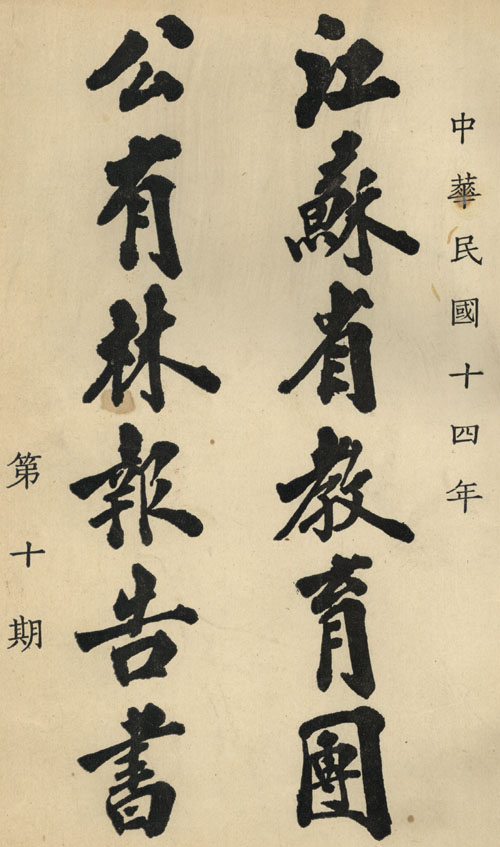 中華民國十四年
江蘇省教育團
公有林報告書
第十期